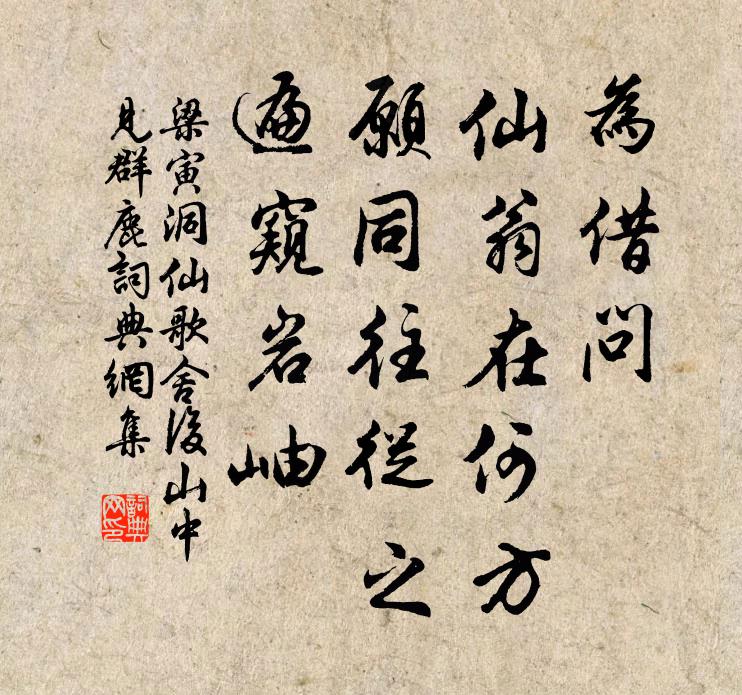 為借問
仙翁在何方
願同往從之
遍窺岩岫
梁寅洞仙歌舍後山中
見群鹿詞典網集
詞典
网印